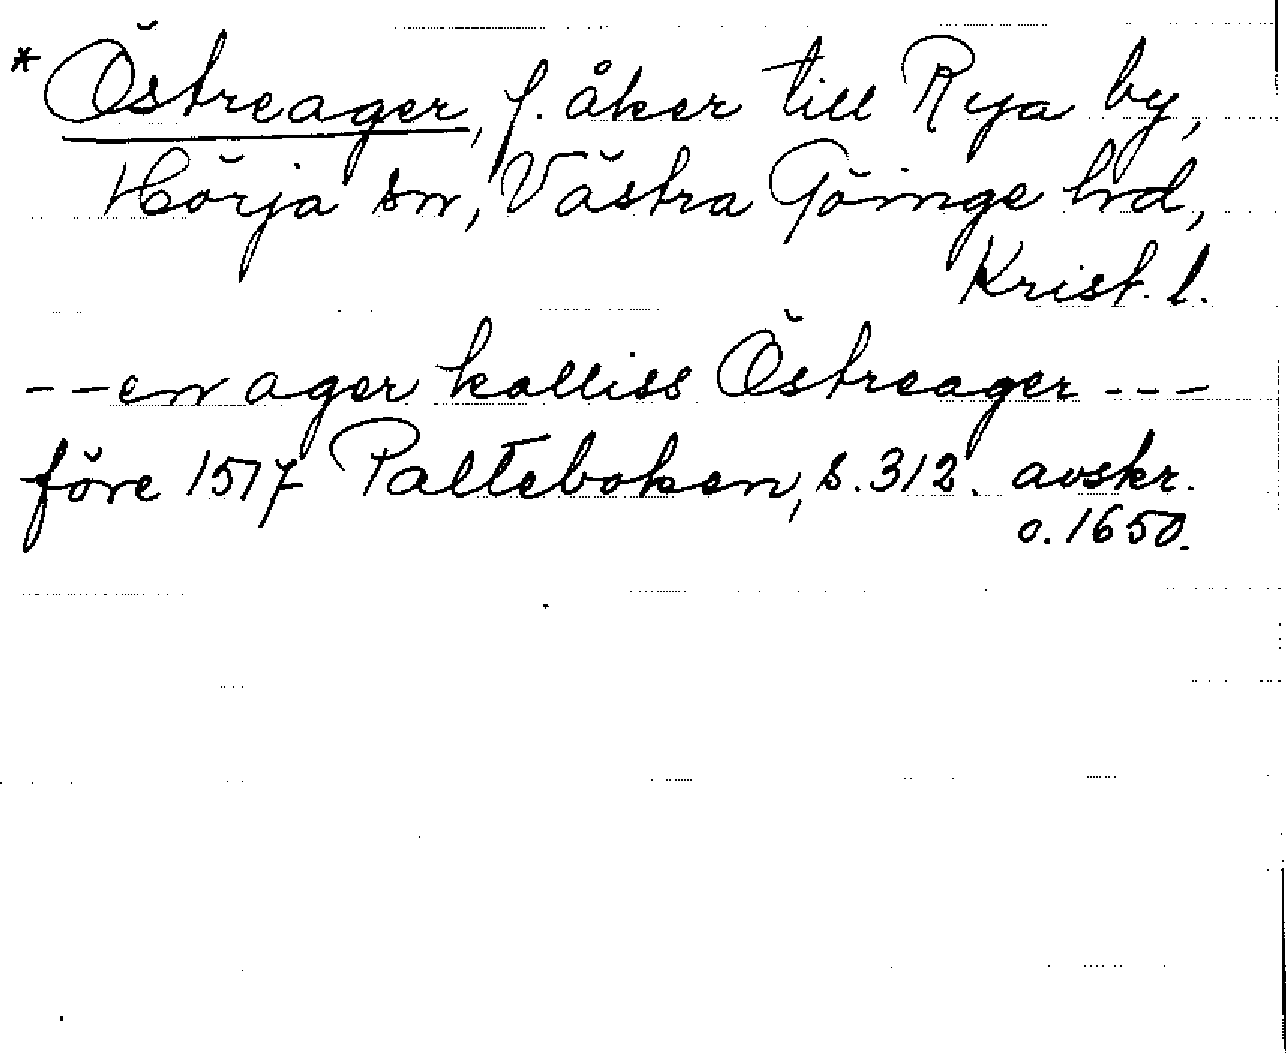 *Östreager, f. åker till Rya by,
Hörja sn, Västra Göinge hd,
Krist. l.
- - en ager kalliss Östreager - - -
före 1517 Palteboken, s. 312. avskr.
o. 1650.